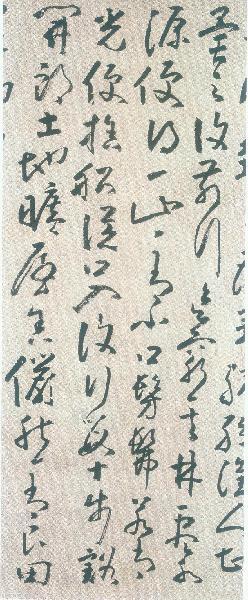 繽紛漁人甚
異之復前行欲窮其林盡水
源便得一山々有小口髣髴若有
光便捨船從口入復行數十步豁
開朗土地曠屋舍儼然有良田